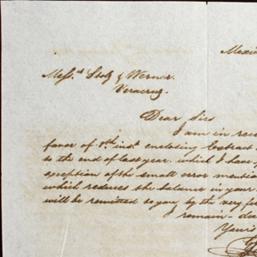 Mexi
Mess.rs Stolz & Werner.
Veracruz.
Dear Sirs
I am in rece
favor of 8th inst enclosing Extract
to the end of last year. which I have f
exception of the small error mentio
which reduces the balance in your
will be remitted to you by the very f
I remain - dea
Yours